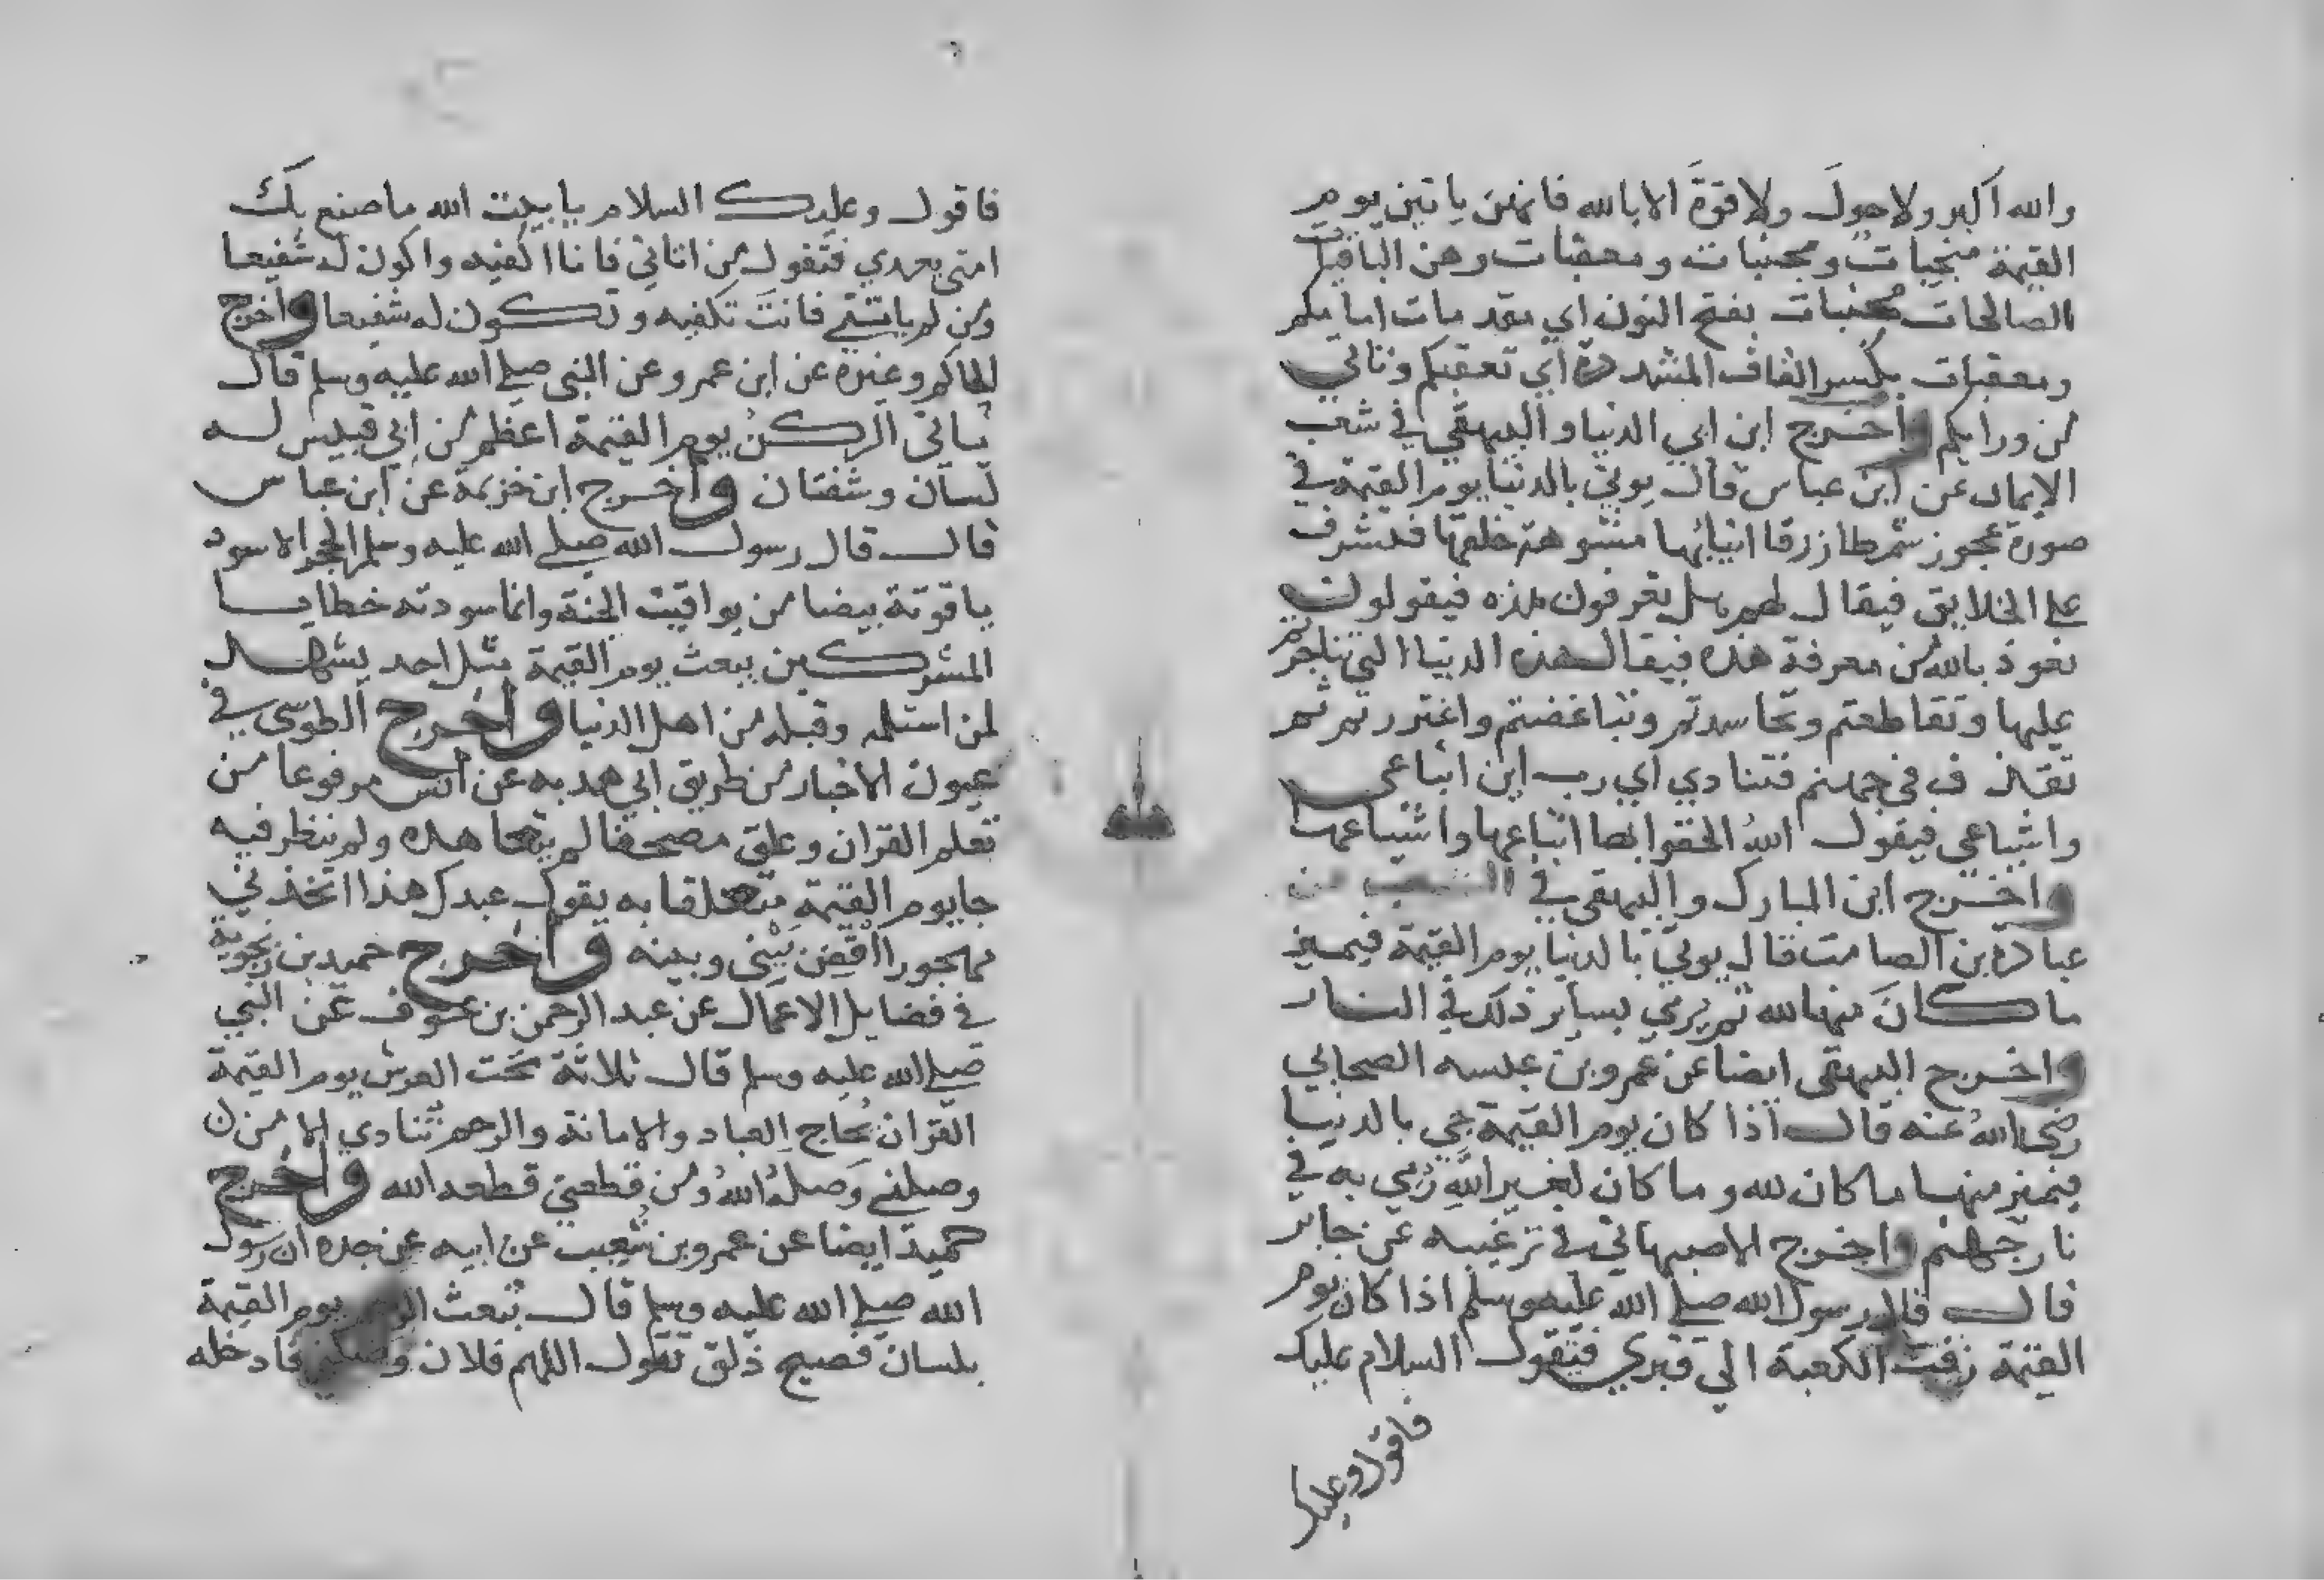 والله اكبر ولا حولَ ولا قوةَ الا بالله فانهن ياتين يوم
القيمة منجيات ومجنبات ومعقبات وهن الباقيات
الصالحات مجنبات بفتح النون اي مقدمات امامكم
ومعقبات بكسر القاف المشددة اي تعقبكم وتاتي
من ورايكم واخرج ابن ابي الدنيا والبيهقي في شعب
الايمان عن ابن عباس قال يوتي بالدنيا يوم القيمة في
صورة عجوز شمطا زرقا انيابها مشوهة خلقها فتشرف
على الخلايق فيقال لهم هل تعرفون هذه فيقولون
نعوذ بالله من معرفة هذه فيقال هذه الدنيا التي تناجزتم
عليها وتقاطعتم وتحاسدتم وتباغضتم واغتررتم ثم
تقذف في جهنم فتنادي اي رب اين اتباعي
واشياعي فيقول اللهُ الحقوا بها اتباعها واشياعها
واخرج ابن المبارك والبيهقي في الشعب عن
عبادة بن الصامت قال يوتي بالدنيا يوم القيمة فيميز
ما كانَ منها لله ثم يرمي بساير ذلك في النار
واخرج البيهقي ايضا عن عمرو بن عبسه الصحابي
رضي اللهُ عنه قال اذا كان يوم القيمة جي بالدنيا
فيميز منها ما كان لله وما كان لغير اللهِ رُمي به في
نار جهنم واخرج الاصبهاني في ترغيبه عن جابر
قال قال رسول الله صلى الله عليه وسلم اذا كان يوم
القيمة زفت الكعبة الي قبري فتقول السلام عليك
فاقول وعليك
فاقول وعليك السلام يا بيت الله ما صنع بكَ
امتي بعدي فتقول من اتاني فانا اكفيه واكون له شفيعا
ومن لم ياتني فانتَ تكفيه وتكون له شفيعا واخرج
الحاكم وغيره عن ابن عمرو عن النبي صلى الله عليه وسلم قال
ياتي الركنُ يوم القيمة اعظم من ابي قبيس له
لسان وشفتان واخرج ابن خزيمة عن ابن عباس
قال قال رسول الله صلى الله عليه وسلم الحجر الاسود
ياقوتة بيضا من يواقيت الجنة وانما سودته خطايا
المشركين يبعث يوم القيمة مثل احد يشهد
لمن استلمه وقبله من اهل الدنيا واخرج الطوسي في
عيون الاخبار من طريق ابي هدبه عن انس مرفوعا من
تعلم القران وعلق مصحفا لم يتعاهده ولم ينظر فيه
جا يوم القيمة متعلقا به يقول عبدك هذا اتخذني
مهجورا اقضِ بَيْني وبينه واخرج حميد بن زنجوية
في فضايل الاعمال عن عبد الرحمن بن عوف عن النبي
صلى الله عليه وسلم قال ثلاثة تحت العرش يوم القيمة
القران يُحاج العباد والامانة والرحم تنادي الا من
وصلني وَصلهُ اللهُ ومن قطعني قطعه الله واخرج
حميد ايضا عن عمرو بن شُعيب عن ابيه عن جده ان رسول
الله صلى الله عليه وسلم قال تُبعث الرحم يوم القيمة
بلسان فصيح ذلق تقول اللهم فلان وصلني فادخله